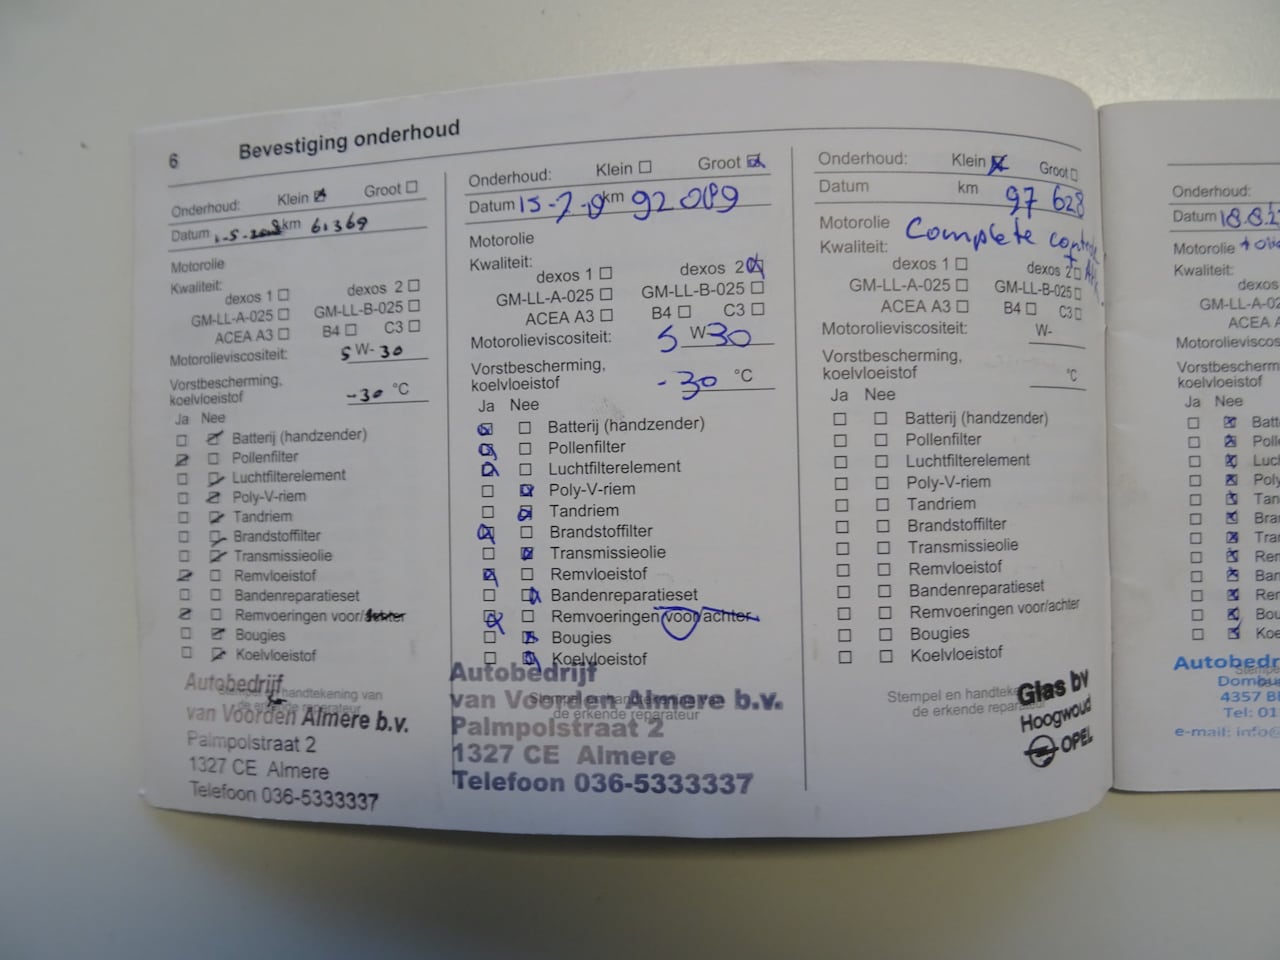 6 Bevestiging onderhoud
Onderhoud: Klein Groot
Datum km 61369
Motorolie
Kwaliteit:
dexos 1 dexos 2
GM-LL-A-025 GM-LL-B-025
ACEA A3 B4 C3
Motorolieviscositeit: 5 W- 30
Vorstbescherming,
koelvloeistof -30 °C
Ja Nee
Batterij (handzender)
Pollenfilter
Luchtfilterelement
Poly-V-riem
Tandriem
Brandstoffilter
Transmissieolie
Remvloeistof
Bandenreparatieset
Remvoeringen voor/achter
Bougies
Koelvloeistof
Stempel en handtekening van
de erkende reparateur
Autobedrijf
van Voorden Almere b.v.
Palmpolstraat 2
1327 CE Almere
Telefoon 036-5333337
Onderhoud: Klein Groot
Datum km 92089
Motorolie
Kwaliteit:
dexos 1 dexos 2
GM-LL-A-025 GM-LL-B-025
ACEA A3 B4 C3
Motorolieviscositeit: 5 W- 30
Vorstbescherming,
koelvloeistof -30 °C
Ja Nee
Batterij (handzender)
Pollenfilter
Luchtfilterelement
Poly-V-riem
Tandriem
Brandstoffilter
Transmissieolie
Remvloeistof
Bandenreparatieset
Remvoeringen voor/achter
Bougies
Koelvloeistof
Stempel en handtekening van
de erkende reparateur
Autobedrijf
van Voorden Almere b.v.
Palmpolstraat 2
1327 CE Almere
Telefoon 036-5333337
Onderhoud: Klein Groot
Datum km 97 628
Motorolie Complete
Kwaliteit:
dexos 1 dexos 2
GM-LL-A-025 GM-LL-B-025
ACEA A3 B4 C3
Motorolieviscositeit: W-
Vorstbescherming,
koelvloeistof °C
Ja Nee
Batterij (handzender)
Pollenfilter
Luchtfilterelement
Poly-V-riem
Tandriem
Brandstoffilter
Transmissieolie
Remvloeistof
Bandenreparatieset
Remvoeringen voor/achter
Bougies
Koelvloeistof
Stempel en handteke
de erkende reparateur
Glas bv
Hoogwoud
OPEL
Onderhoud:
Datum 18.8.
Motorolie
Kwaliteit:
dexos
GM-LL-A
ACEA A
Motorolieviscos
Vorstbescherm
koelvloeistof
Ja Nee
Batt
Poll
Luc
Poly
Tan
Bra
Tra
Ren
Ban
Rer
Bou
Koe
Autobedr
Dombu
4357 B
Tel: 01
e-mail: info@